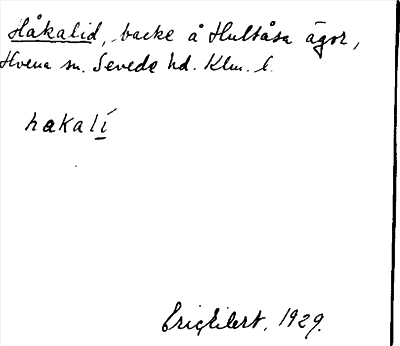 Håkalid, backe å Hultåsa ägor,
Hvena sn. Sevede hd. Klm. l.
hakalí
Eric Eilert. 1929.